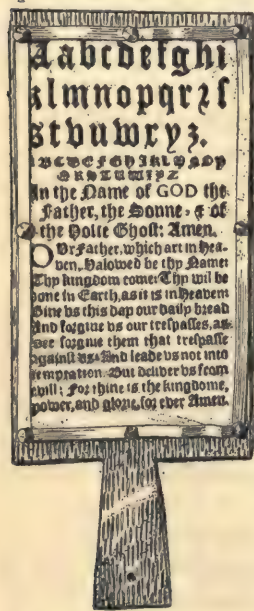 Aabcdefghi
klmnopqrꝛſ
stvuwxyz.
ABCDEFGHIKLMNOP
QRSTUWXYZ
In the Name of GOD the
Father, the Sonne, & of
the Holie Ghost: Amen.
OUr Father, which art in hea-
ven, Halowed be thy Name:
Thy kingdom come: Thy wil be
done in Earth, as it is in heaven:
Give vs this day our daily bread
And forgiue vs our trespasses, as
wee forgiue them that trespasse
against vs: And leade vs not into
temptation: But deliuer vs from
evill: For thine is the kingdome,
power, and glorie, for ever Amen.